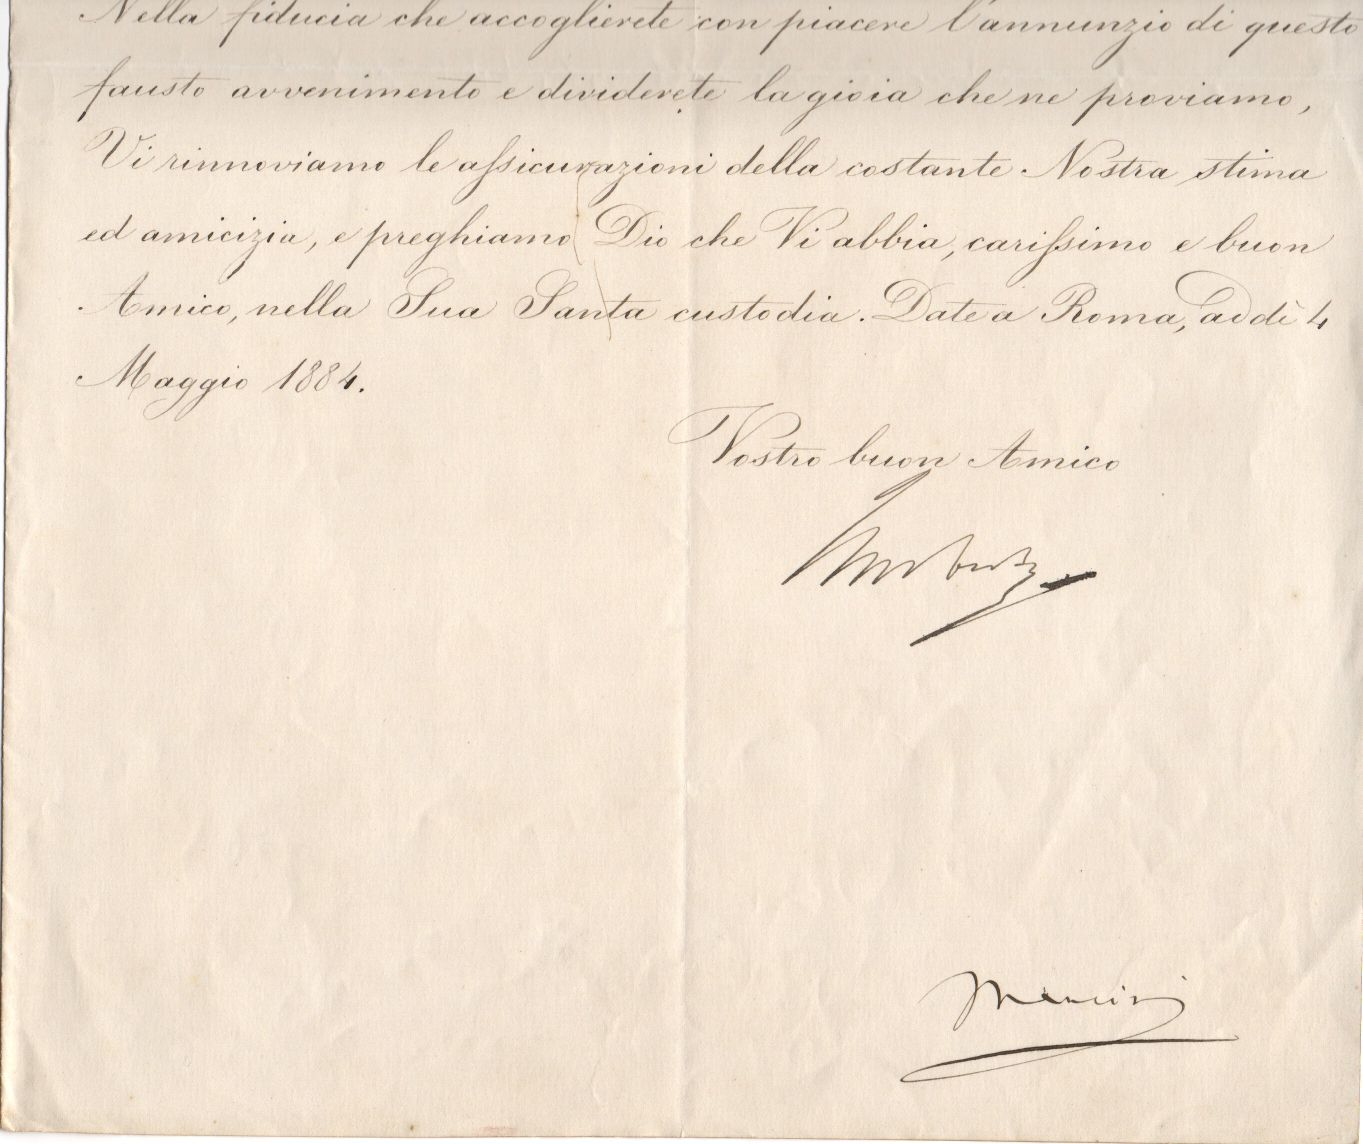 Nella fiducia che accoglierete con piacere l'annunzio di questo
fausto avvenimento e dividerete la gioia che ne proviamo,
Vi rinnoviamo le assicurazioni della costante Nostra stima
ed amicizia, e preghiamo Dio che Vi abbia, carissimo e buon
Amico, nella Sua Santa custodia. Date a Roma, addì 4
Maggio 1884.
Vostro buon Amico
Umberto
Mancini